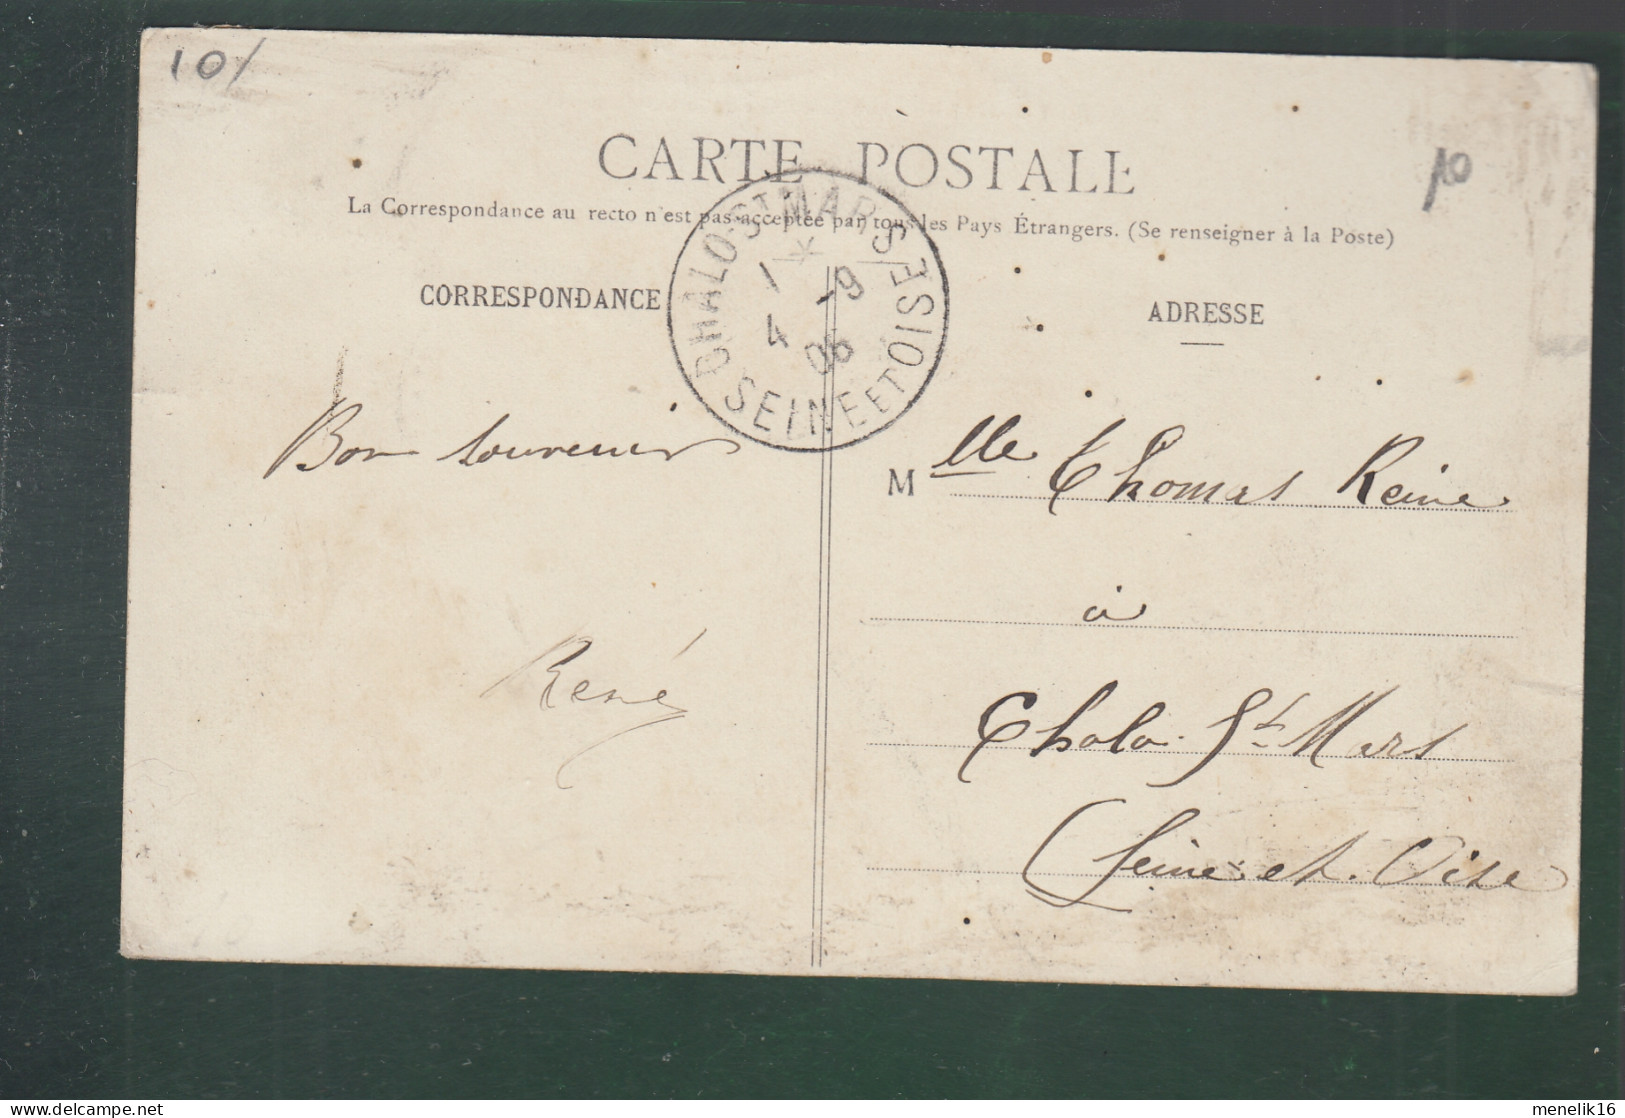 10/
10
CARTE POSTALE
La Correspondance au recto n'est pas acceptée par tous les Pays Étrangers. (Se renseigner à la Poste)
CORRESPONDANCE
ADRESSE
CHALO-ST MARS
1 -9
4 06
SEINE ET OISE
Bon souvenir
René
Mlle Thomas Reine
à
Chalo-St-Mars
Seine-et-Oise
delcampe.net
menelik16